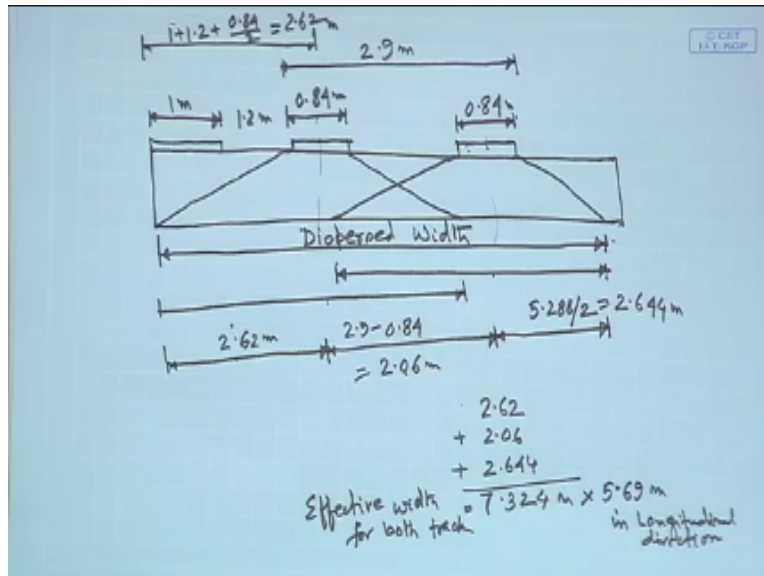 1+1.2+ 0.84/2 = 2.62m
© CET
I.I.T. KGP
2.9m
1m
1.2m
0.84m
0.84m
Dispersed Width
5.288/2 = 2.644m
2.62m
2.9-0.84
= 2.06m
2.62
+ 2.06
+ 2.644
Effective width
for both track
= 7.324 m × 5.69 m
in Longitudinal
direction